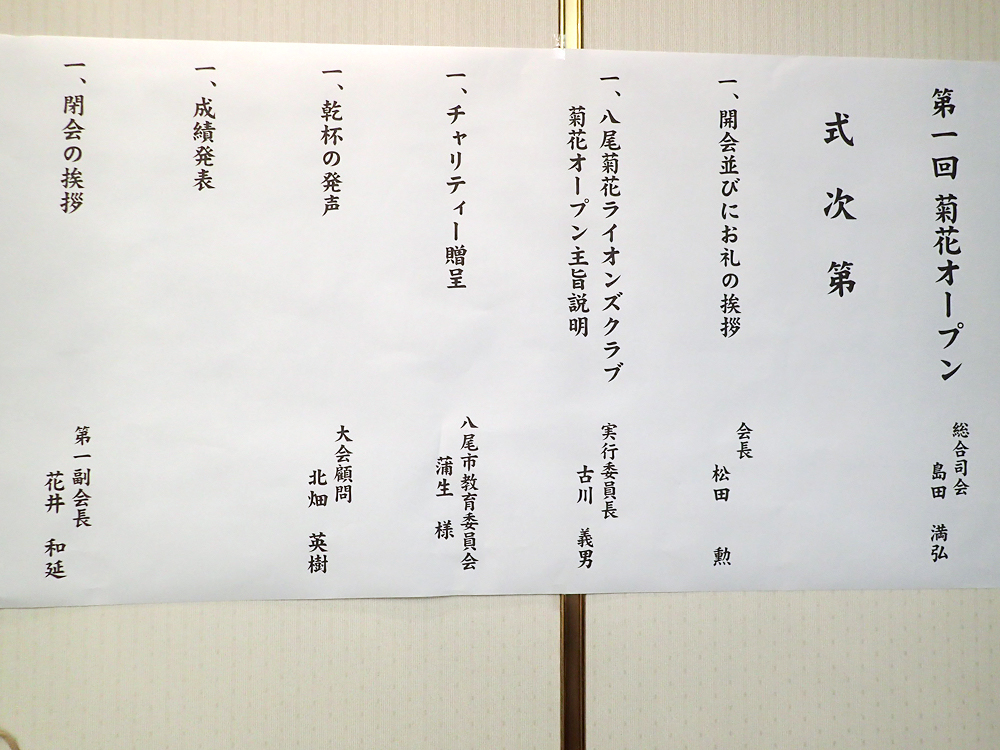 第一回 菊花オープン
総合司会
島田 満弘
式次第
一、開会並びにお礼の挨拶
会長
松田 勲
一、八尾菊花ライオンズクラブ
菊花オープン主旨説明
実行委員長
古川 義男
一、チャリティー贈呈
八尾市教育委員会
蒲生 様
一、乾杯の発声
大会顧問
北畑 英樹
一、成績発表
一、閉会の挨拶
第一副会長
花井 和延